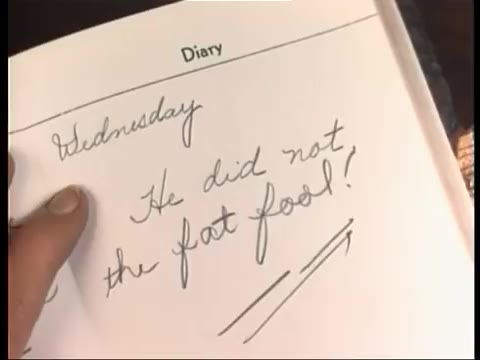 Diary
Wednesday
He did not,
the fat fool!